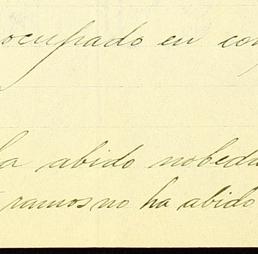 ocupado en co
la abido nobeda
ramos no ha abido